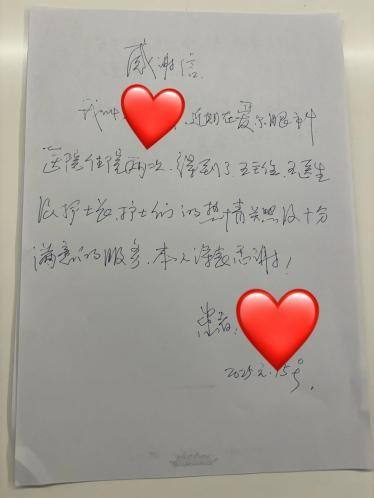 感谢信
我叫 近期在爱尔眼科
医院住院两次，得到了王主任、王医生
及护士长、护士们的热情关照及十分
满意的服务，本人深表感谢！
患者：
2025.2.15号.